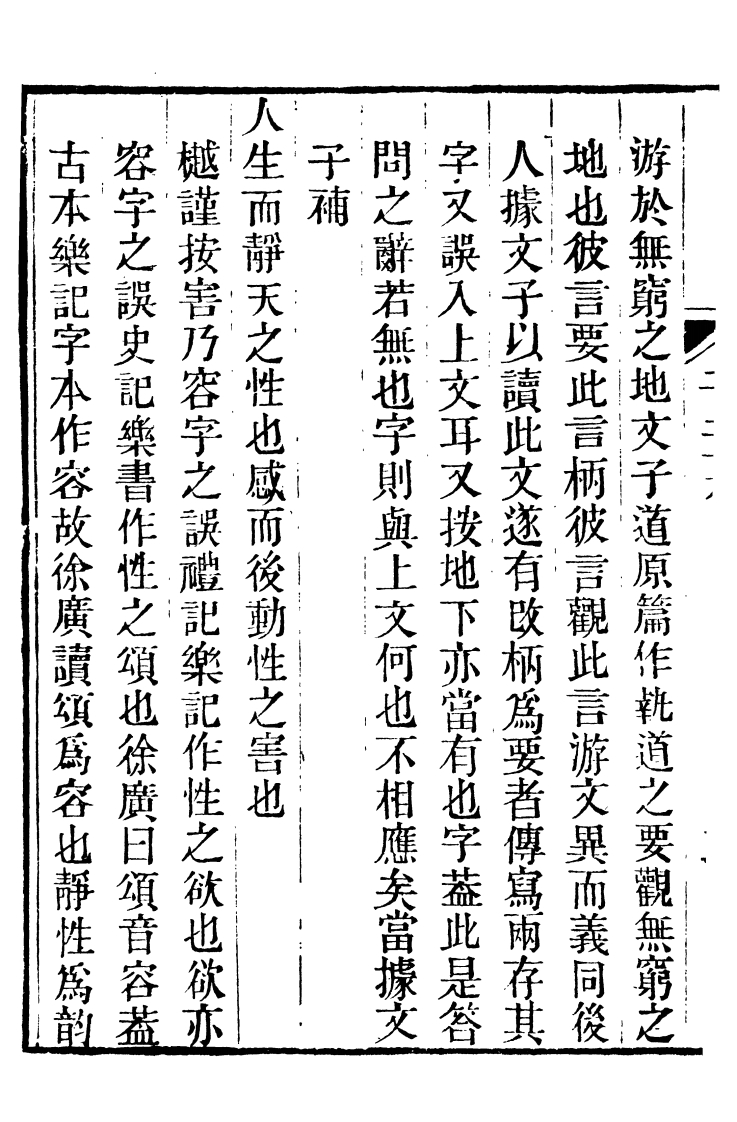 游於無窮之地文子道原篇作執道之要觀無窮之
地也彼言要此言柄彼言觀此言游文異而義同後
人據文子以讀此文遂有改柄爲要者傳寫兩存其
字又誤入上文耳又按地下亦當有也字葢此是答
問之辭若無也字則與上文何也不相應矣當據文
子補
人生而靜天之性也感而後動性之害也
樾謹按害乃容字之誤禮記樂記作性之欲也欲亦
容字之誤史記樂書作性之頌也徐廣曰頌音容葢
古本樂記字本作容故徐廣讀頌爲容也靜性爲韵